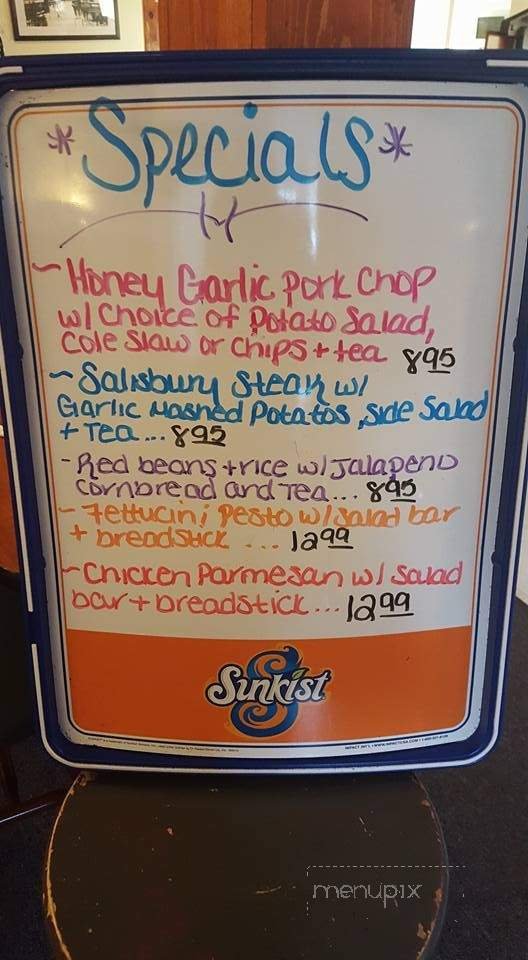 * Specials *
~ Honey Garlic Pork Chop
w/ Choice of Potato Salad,
Cole Slaw or Chips + tea 8 95
~ Salisbury Steak w/
Garlic Mashed Potatos, side Salad
+ Tea... 8 95
- Red beans + rice w/ Jalapeno
Cornbread and Tea... 8 95
- Fettucini Pesto w/ salad bar
+ breadstick ... 12 99
- Chicken Parmesan w/ Salad
bar + breadstick... 12 99
Sunkist
menupix